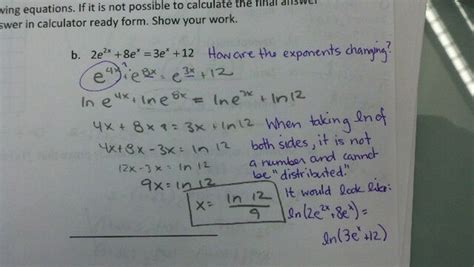 ving equations. If it is not possible to calculate the final answer
swer in calculator ready form. Show your work.
b. 2e^{2x} + 8e^x = 3e^x + 12 How are the exponents changing?
e^{4x} + e^{8x} = e^{3x} + 12
ln e^{4x} + ln e^{8x} = ln e^{3x} + ln 12
4x + 8x = 3x + ln 12
4x+8x-3x = ln 12
12x-3x = ln 12
9x = ln 12
x = ln 12 / 9
When taking ln of
both sides, it is not
a number and cannot
be "distributed."
It would look like:
ln(2e^{2x}+8e^x) =
ln(3e^x+12)